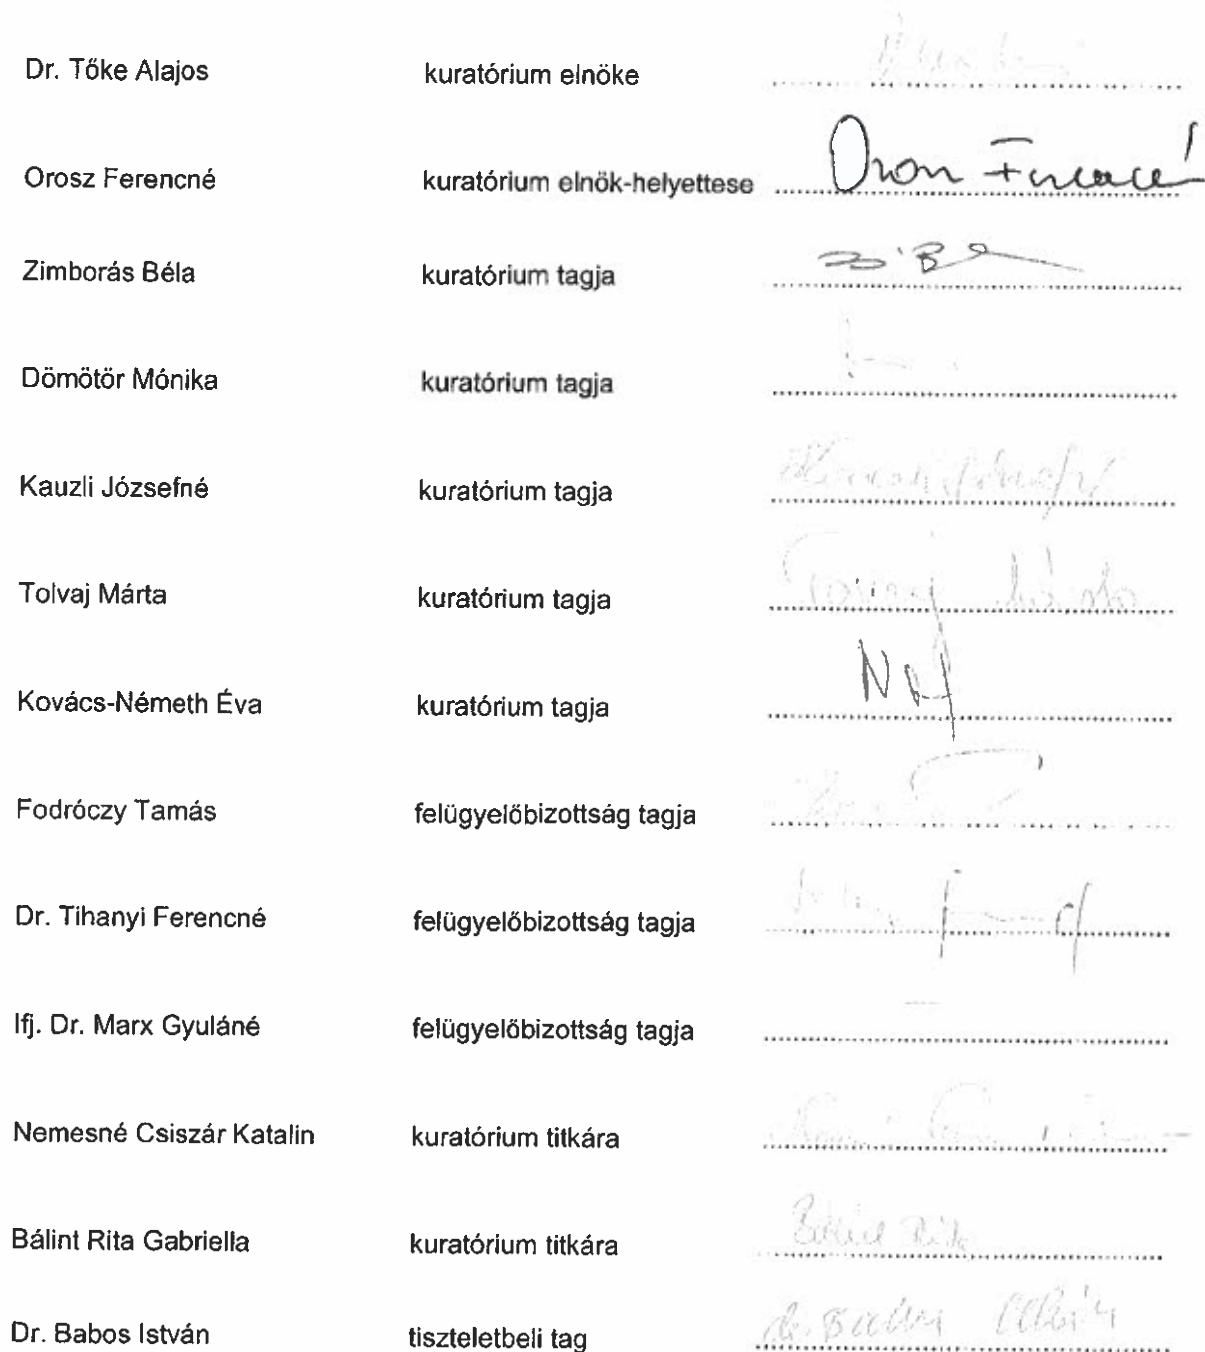 Dr. Tőke Alajos kuratórium elnöke
Orosz Ferencné kuratórium elnök-helyettese Orosz Ferencné
Zimborás Béla kuratórium tagja
Dömötör Mónika kuratórium tagja
Kauzli Józsefné kuratórium tagja
Tolvaj Márta kuratórium tagja Tolvaj Márta
Kovács-Németh Éva kuratórium tagja
Fodróczy Tamás felügyelőbizottság tagja
Dr. Tihanyi Ferencné felügyelőbizottság tagja
Ifj. Dr. Marx Gyuláné felügyelőbizottság tagja
Nemesné Csiszár Katalin kuratórium titkára
Bálint Rita Gabriella kuratórium titkára Bálint Rita
Dr. Babos István tiszteletbeli tag